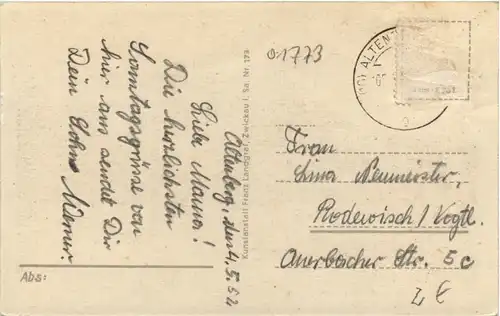 Altenberg, den 4.5.52
Liebe Mama!
Die herzlichsten
Sonntagsgrüsse von
hier aus sendet Dir
Dein Sohn Werner.
Abs:
Kunstanstalt Franz Landgraf, Zwickau i. Sa. Nr. 179
01773
ALTEN
Frau
Lina Neumeister,
Rodewisch / Vogtl.
Auerbacher Str. 5c